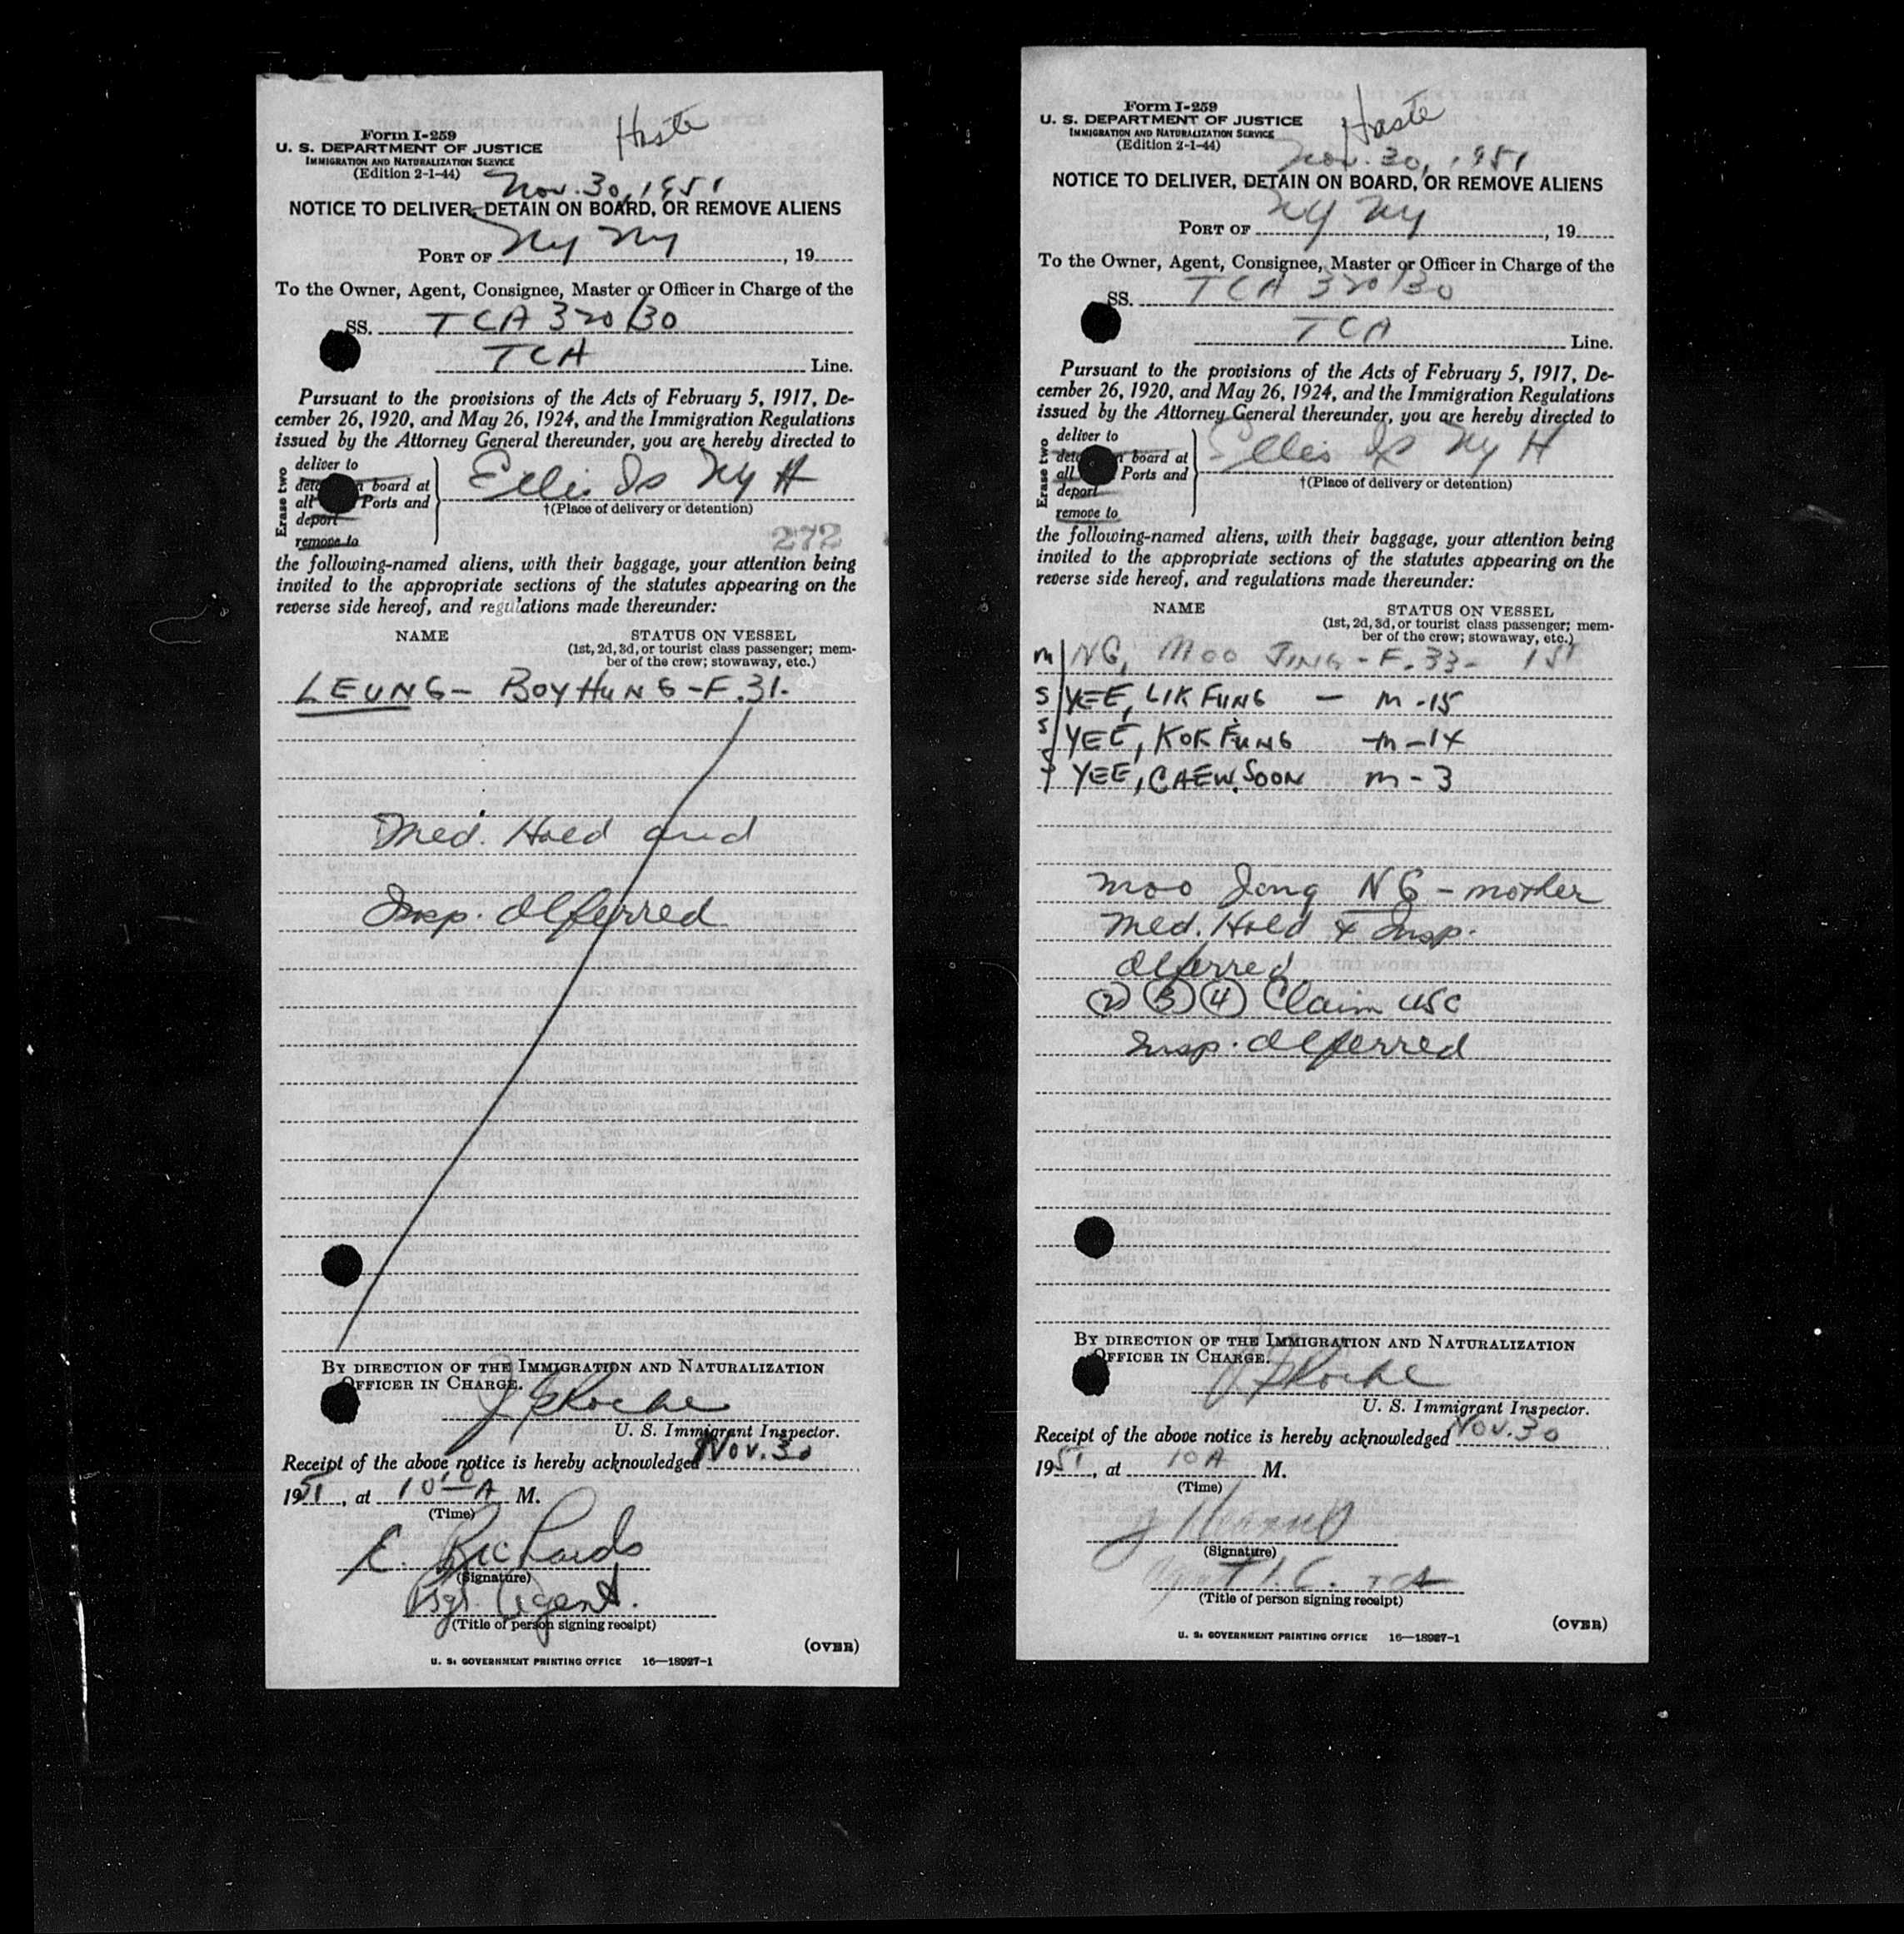 Haste
Form I-259
U. S. DEPARTMENT OF JUSTICE
IMMIGRATION AND NATURALIZATION SERVICE
(Edition 2-1-44)
Nov. 30, 1951
NOTICE TO DELIVER, DETAIN ON BOARD, OR REMOVE ALIENS
PORT OF NY NY, 19
To the Owner, Agent, Consignee, Master or Officer in Charge of the
SS. TCA 320/30
TCA Line.
Pursuant to the provisions of the Acts of February 5, 1917, De-
cember 26, 1920, and May 26, 1924, and the Immigration Regulations
issued by the Attorney General thereunder, you are hereby directed to
Erase two
deliver to
board at
all Ports and
deport
remove to
Ellis Is NY H
†(Place of delivery or detention)
272
the following-named aliens, with their baggage, your attention being
invited to the appropriate sections of the statutes appearing on the
reverse side hereof, and regulations made thereunder:
NAME STATUS ON VESSEL
(1st, 2d, 3d, or tourist class passenger; mem-
ber of the crew; stowaway, etc.)
LEUNG - BOY HUNG - F. 31.
Med. Hold and
Insp. deferred
BY DIRECTION OF THE IMMIGRATION AND NATURALIZATION
OFFICER IN CHARGE.
U. S. Immigrant Inspector.
Receipt of the above notice is hereby acknowledged Nov. 30
1951, at 10 10 A M.
(Time)
E. Richards
(Signature)
Psgr. Agent.
(Title of person signing receipt)
(OVER)
U. S. GOVERNMENT PRINTING OFFICE 16—18927-1
Haste
Form I-259
U. S. DEPARTMENT OF JUSTICE
IMMIGRATION AND NATURALIZATION SERVICE
(Edition 2-1-44)
Nov. 30, 1951
NOTICE TO DELIVER, DETAIN ON BOARD, OR REMOVE ALIENS
PORT OF NY NY, 19
To the Owner, Agent, Consignee, Master or Officer in Charge of the
SS. TCA 320/30
TCA Line.
Pursuant to the provisions of the Acts of February 5, 1917, De-
cember 26, 1920, and May 26, 1924, and the Immigration Regulations
issued by the Attorney General thereunder, you are hereby directed to
Erase two
deliver to
board at
all Ports and
deport
remove to
Ellis Is NY H
†(Place of delivery or detention)
the following-named aliens, with their baggage, your attention being
invited to the appropriate sections of the statutes appearing on the
reverse side hereof, and regulations made thereunder:
NAME STATUS ON VESSEL
(1st, 2d, 3d, or tourist class passenger; mem-
ber of the crew; stowaway, etc.)
M NG, MOO JING - F. 33 - 1ST
S YEE, LIK FUNG - M - 15
S YEE, KOK FUNG - M - 14
YEE, CAEW SOON M - 3
Moo Jong NG - mother
Med. Hold & Insp.
deferred
2 3 4 Claim USC
Insp. deferred
BY DIRECTION OF THE IMMIGRATION AND NATURALIZATION
OFFICER IN CHARGE.
U. S. Immigrant Inspector.
Receipt of the above notice is hereby acknowledged Nov. 30
1951, at 10 A M.
(Time)
(Signature)
TCA
(Title of person signing receipt)
(OVER)
U. S. GOVERNMENT PRINTING OFFICE 16—18927-1